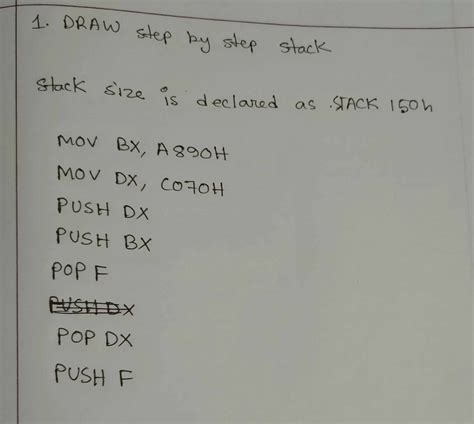 1. DRAW step by step stack
stack size is declared as .STACK 150h
MOV BX, A890H
MOV DX, C070H
PUSH DX
PUSH BX
POP F
PUSH DX
POP DX
PUSH F